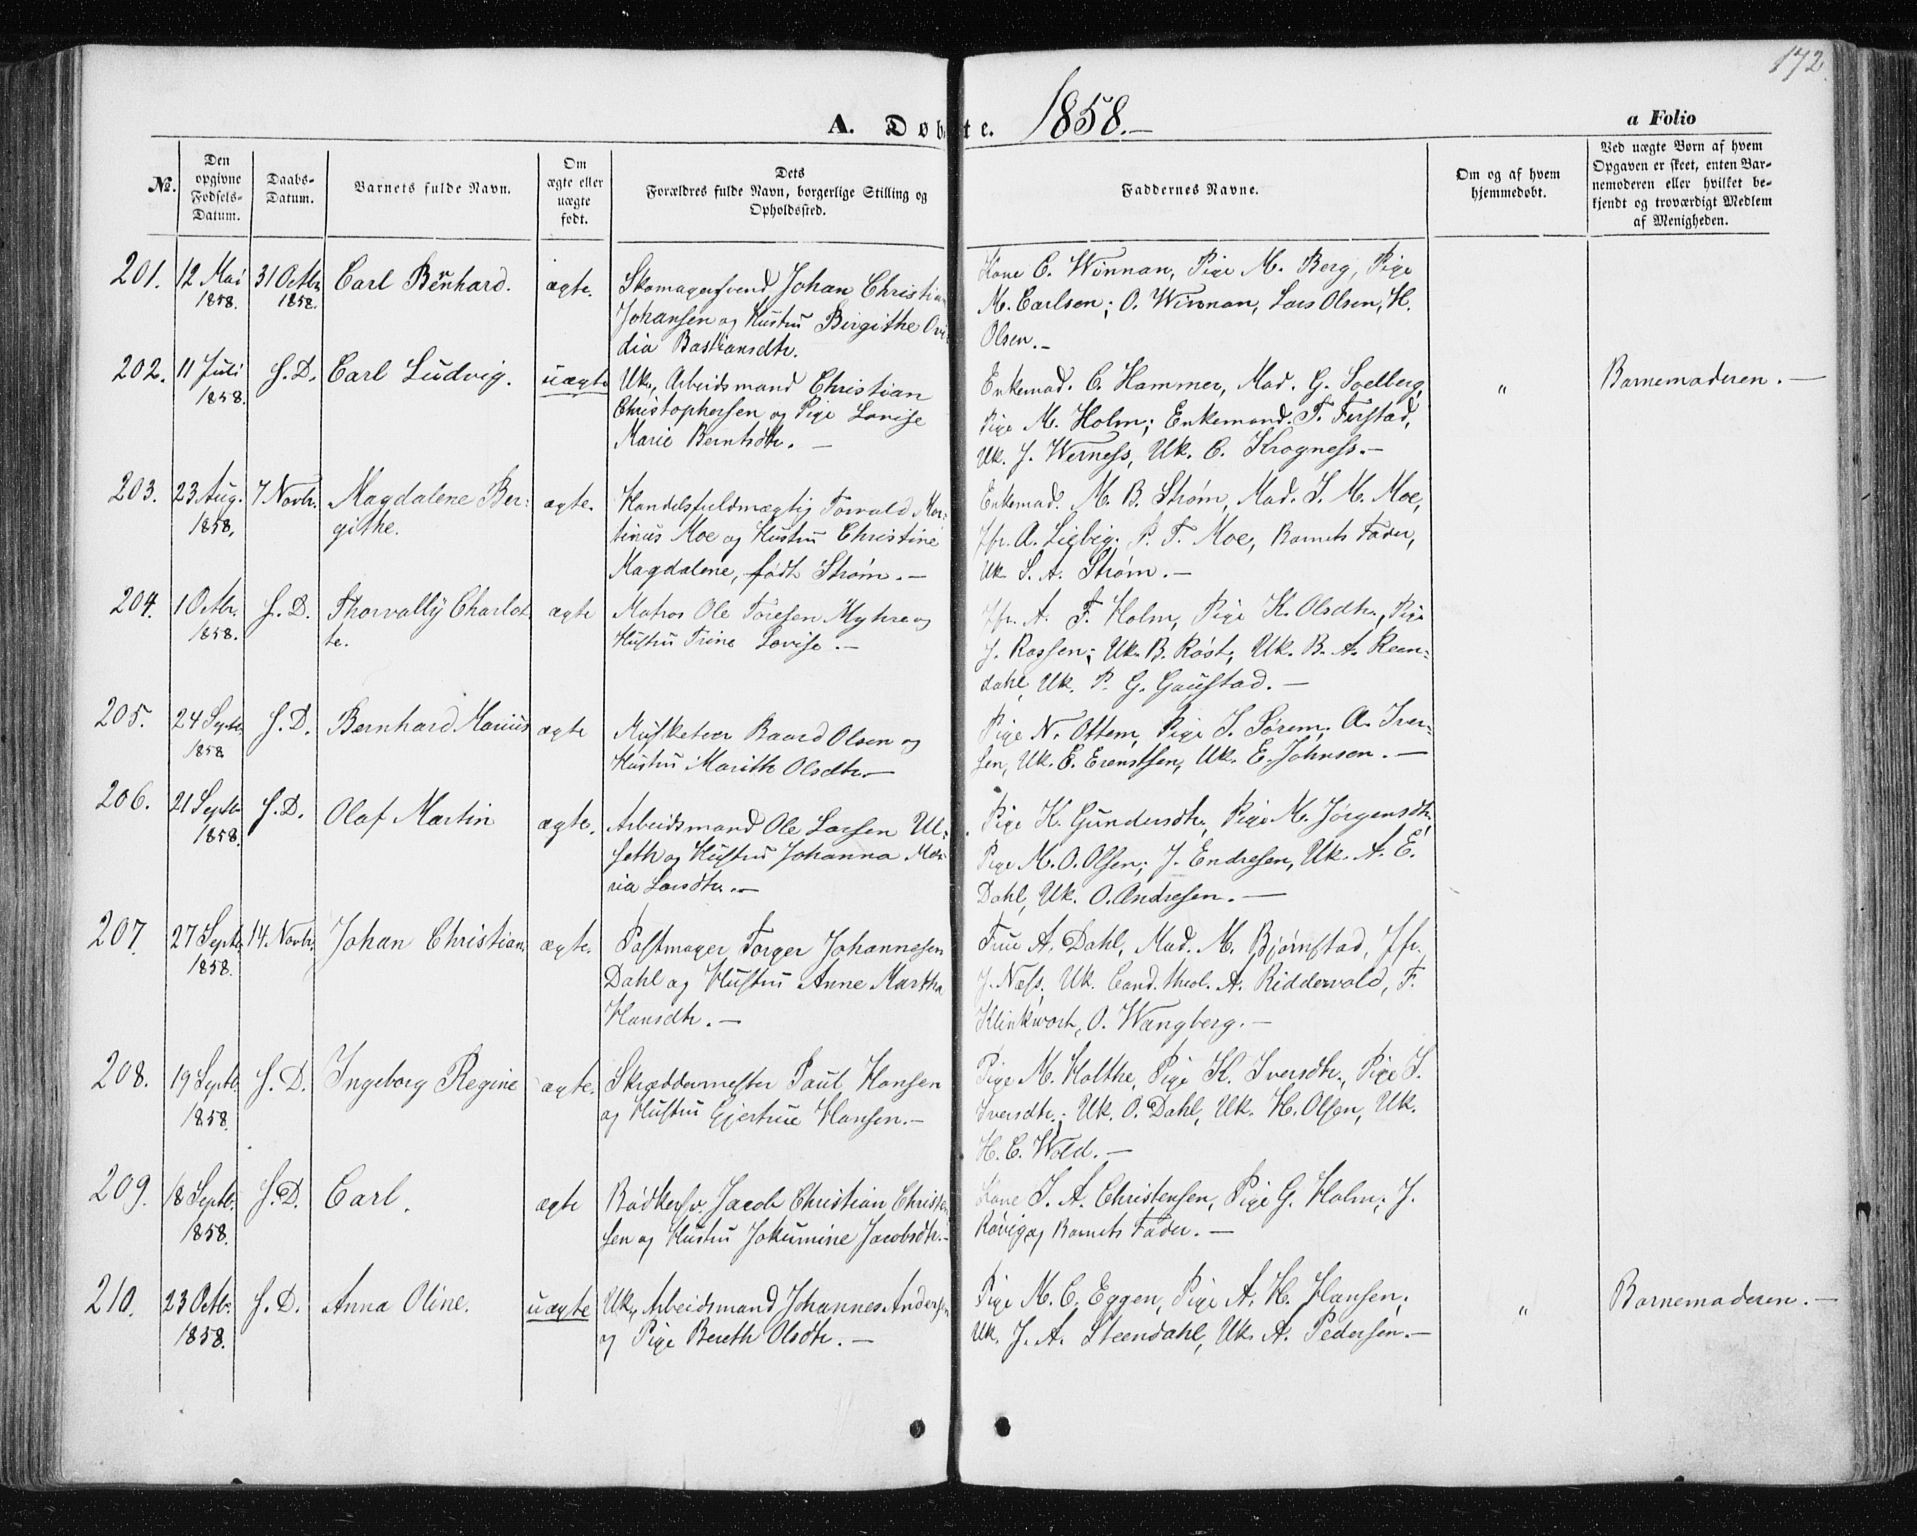 172.
A. Døbte. 1858.—
a Folio
No.
Den opgivne Fødsels-Datum.
Daabs-Datum.
Barnets fulde Navn.
Om ægte eller uægte født.
Dets Forældres fulde Navn, borgerlige Stilling og Opholdssted.
Faddernes Navne.
Om og af hvem hjemmedøbt.
Ved uægte Børn af hvem Opgaven er skeet, enten Barnemoderen eller hvilket bekjendt og troværdigt Medlem af Menigheden.
201. 12 Mai 1858. 31 Octbr. 1858. Carl Bernhard. ægte.
Skomagersvend Johan Christian
Johansen og Hustru Birgithe Ovi-
dia Bastiansdtr.
Kone C. Winnan, Pige M. Berg, Pige
M. Carlsen; O. Winnan, Lars Olsen, H.
Olsen.—
202. 11 Juli 1858. S. D. Carl Ludvig. uægte
Uk. Arbeidsmand Christian
Christophersen og Pige Lovise
Marie Berntsdtr.—
Enkemad. C. Hammer, Mad. G. Soelberg,
Pige M. Holm; Enkemand. T. Firstad,
Uk. J. Werness, Uk. C. Krogness.—
" Barnemoderen.—
203. 23 Aug. 1858. 7 Novbr. Magdalene Ber-
githe. ægte.
Handelsfuldmægtig Torvald Mar-
tinus Moe og Hustru Christine
Magdalene, født Strøm.—
Enkemad. M. B. Strøm, Mad. S. M. Moe,
Jfr. A. Liebig; P. T. Moe, Barnets Fader,
Uk. S. A. Strøm.—
204. 1 Octbr. 1858. S. D. Thorvally Charlot-
te. ægte
Matros Ole Toresen Myhre og
Hustru Trine Lovise.—
Jfr. A. F. Holm, Pige K. Olsdtr., Pige
J. Rossen; Uk. B. Røst, Uk. B. A. Reen-
dahl, Uk. P. G. Gaustad.—
205. 24 Septbr. 1858 S. D. Bernhard Marius ægte
Musketeer Baard Olsen og
Hustru Marith Olsdtr.—
Pige N. Ottem, Pige S. Sørem; A. Iver-
sen, Uk. E. Erenstsen, Uk. E. Johnsen.—
206. 21 Septbr. 1858. S. D. Olaf Martin ægte.
Arbeidsmand Ole Larsen Ul-
seth og Hustru Johanna Ma-
ria Larsdtr.—
Pige K. Gundersdtr, Pige M. Jørgensdtr,
Pige M. O. Olsen; J. Endresen, Uk. A. E.
Dahl, Uk. O. Andresen.—
207. 27 Septbr. 1858. 14. Novbr. Johan Christian. ægte.
Postmager Torger Johannesen
Dahl og Hustru Anne Martha
Hansdtr.—
Frue A. Dahl, Mad. M. Bjørnstad, Jfr.
J. Næss, Uk. Cand. theol. A. Riddervold, F.
Klinkwort, O. Wangberg.—
208. 19 Septbr. 1858. S. D. Ingeborg Regine ægte.
Skræddermester Paul Hansen
og Hustru Gjertrue Hansen.—
Pige M. Holthe, Pige K. Iversdtr., Pige S.
Iversdtr.; Uk. O. Dahl, Uk. H. Olsen, Uk.
H. C. Wold.—
209. 18 Septbr. 1858. S. D. Carl. ægte
Bødkersv. Jacob Christian Christen-
sen og Hustru Jokumine Jacobsdtr.—
Kone S. A. Christensen, Pige G. Holm; J.
Røvig og Barnets Fader.—
210. 23 Octbr. 1858. S. D. Anna Oline. uægte
Uk. Arbeidsmand Johannes Andersen
og Pige Bereth Olsdtr.—
Pige M. C. Eggen, Pige A. H. Hansen;
Uk. J. A. Steendahl, Uk. A. Pedersen.—
" Barnemoderen.—